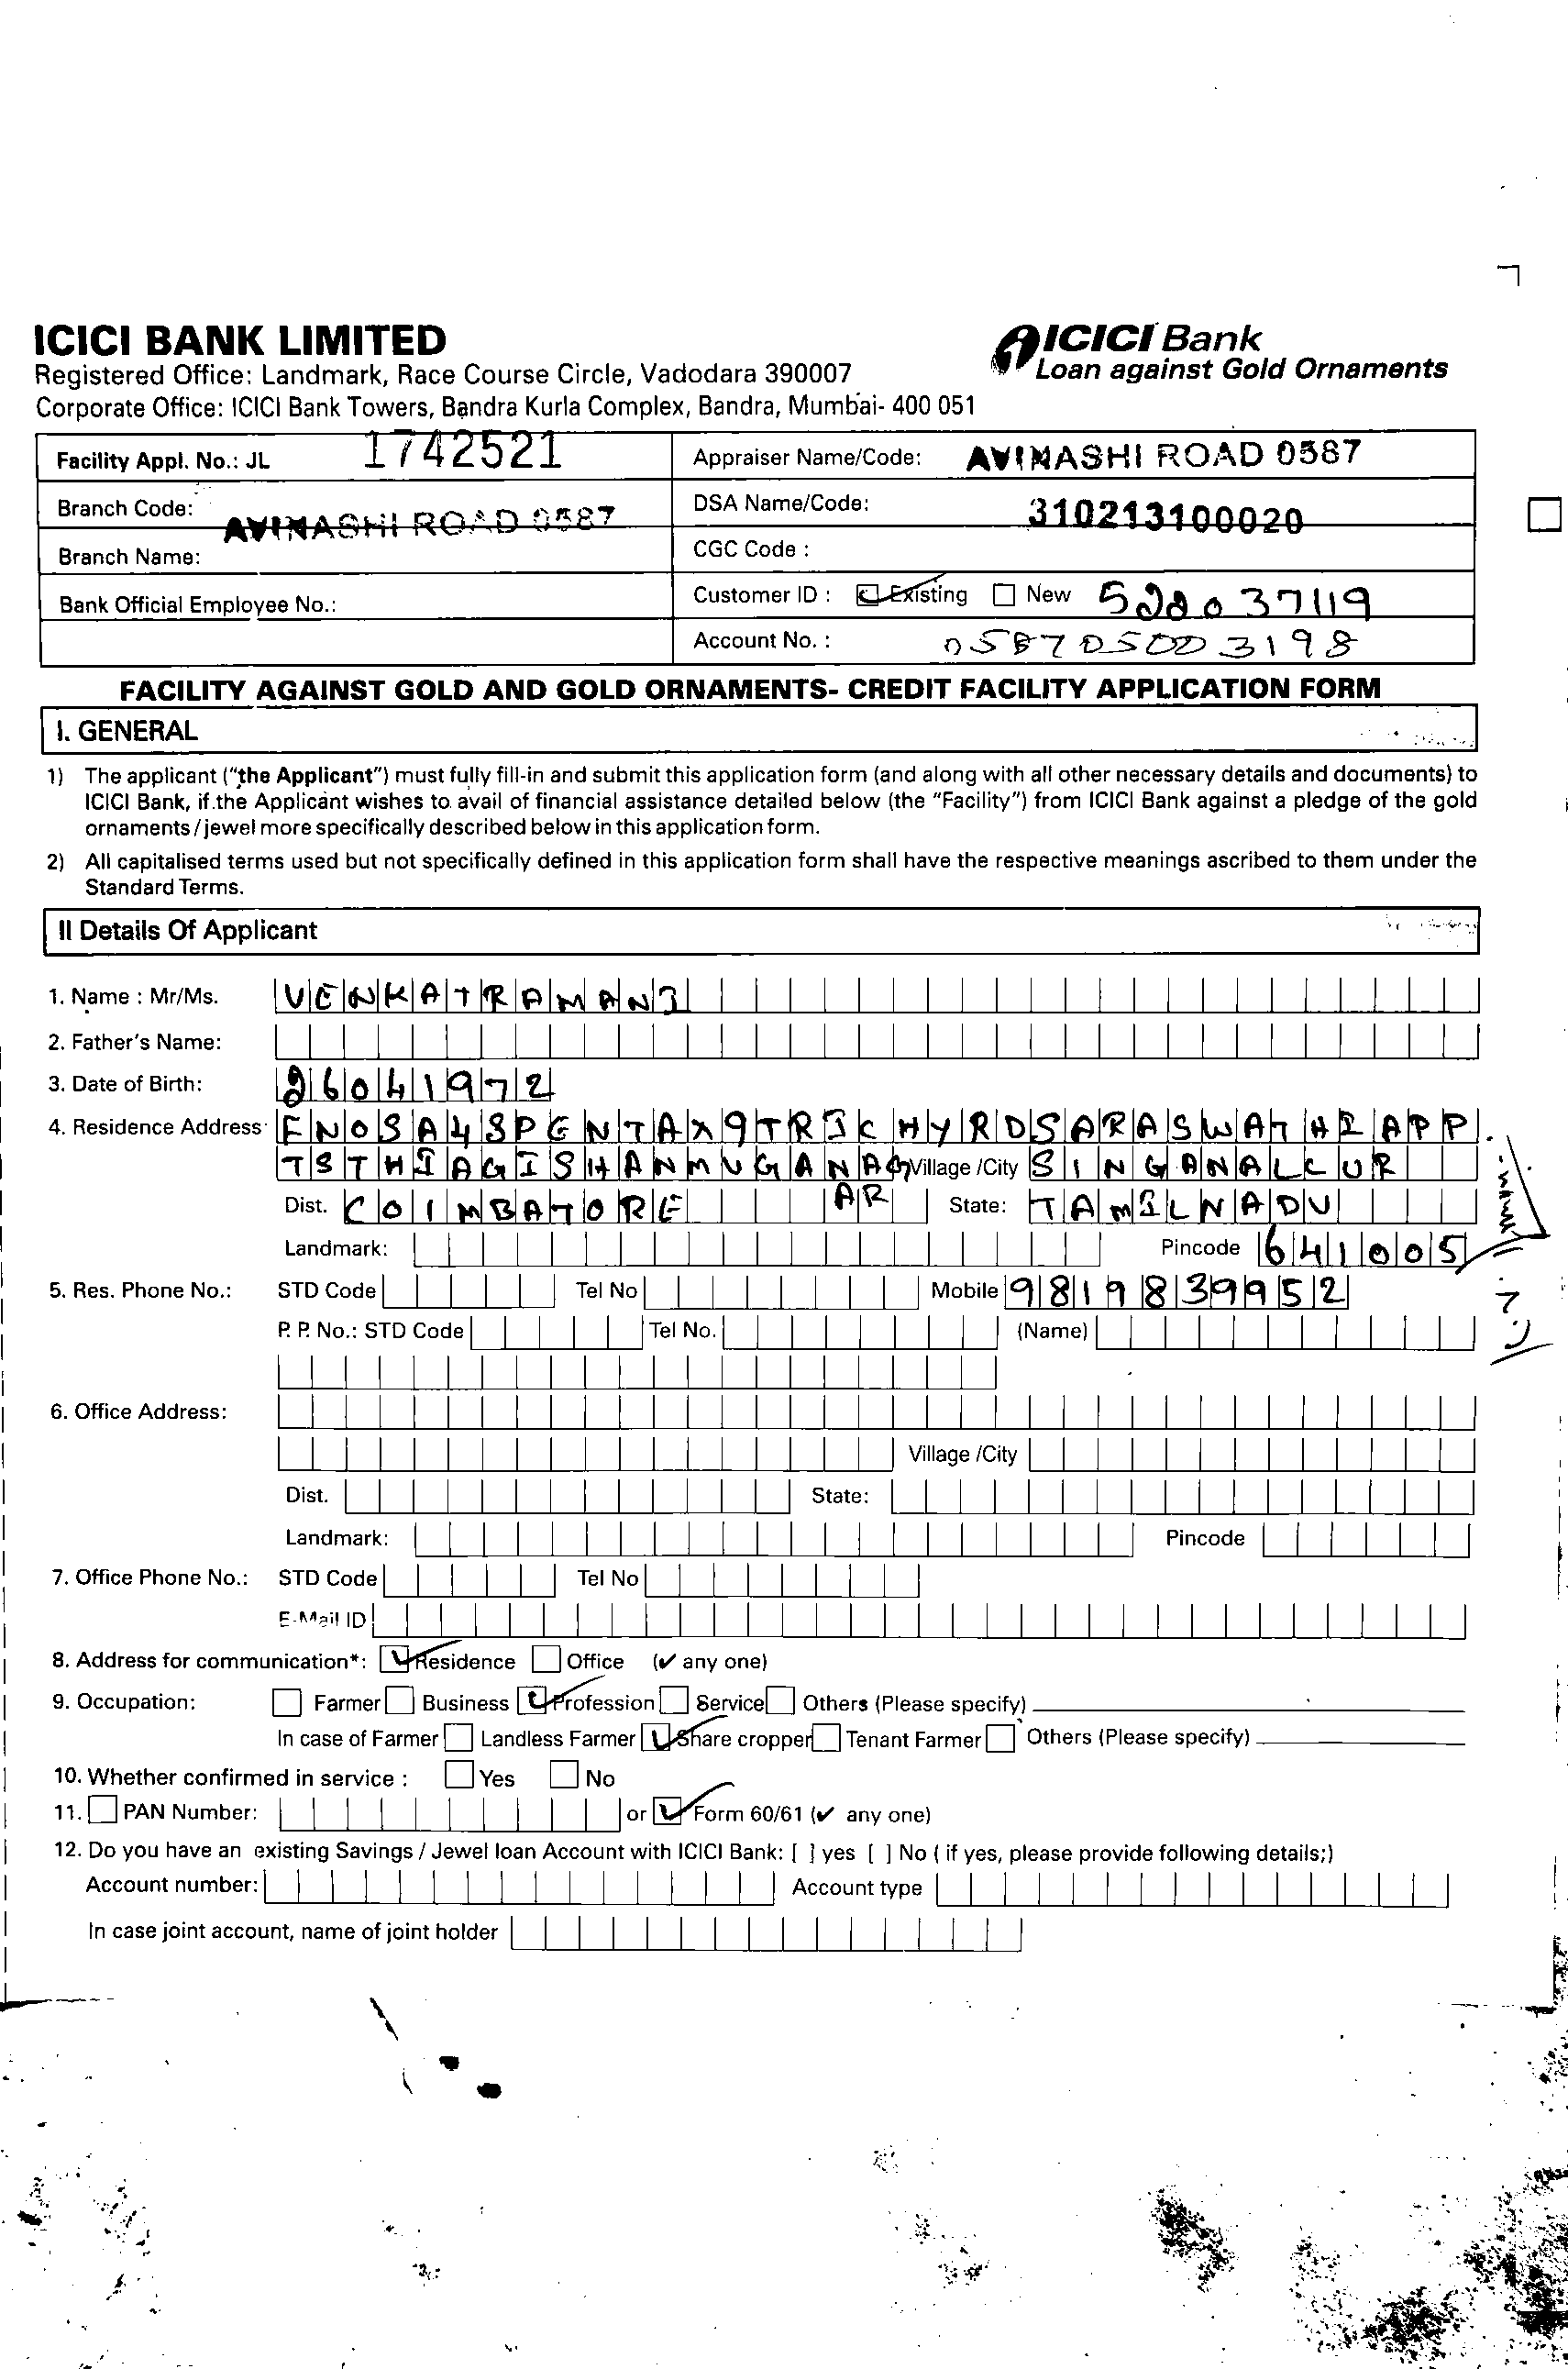 ICICI BANK LIMITED
Registered Office: Landmark, Race Course Circle, Vadodara 390007
Corporate Office: ICICI Bank Towers, Bandra Kurla Complex, Bandra, Mumbai- 400 051
ICICI Bank
Loan against Gold Ornaments
Facility Appl. No.: JL 1742521
Appraiser Name/Code: AVINASHI ROAD 0587
Branch Code: AVINASHI ROAD 0587
DSA Name/Code: 310213100020
Branch Name:
CGC Code :
Bank Official Employee No.:
Customer ID : Existing New 528037119
Account No. : 058705003198
FACILITY AGAINST GOLD AND GOLD ORNAMENTS- CREDIT FACILITY APPLICATION FORM
I. GENERAL
1) The applicant ("the Applicant") must fully fill-in and submit this application form (and along with all other necessary details and documents) to
ICICI Bank, if the Applicant wishes to avail of financial assistance detailed below (the "Facility") from ICICI Bank against a pledge of the gold
ornaments / jewel more specifically described below in this application form.
2) All capitalised terms used but not specifically defined in this application form shall have the respective meanings ascribed to them under the
Standard Terms.
II Details Of Applicant
1. Name : Mr/Ms. VENKATRAMANI
2. Father's Name:
3. Date of Birth: 26041972
4. Residence Address FNOSA4SPENTAX9TRICHYRDSARASWATHIAPP.
TSTHIAGISHANMUGANAG Village /City SINGANALLUR
Dist. COIMBATORE AR State: TAMILNADU
Landmark: Pincode 641005
5. Res. Phone No.: STD Code Tel No Mobile 9819839952
P. P. No.: STD Code Tel No. (Name)
6. Office Address:
Village /City
Dist. State:
Landmark: Pincode
7. Office Phone No.: STD Code Tel No
E-Mail ID
8. Address for communication*: Residence Office (✓ any one)
9. Occupation: Farmer Business Profession Service Others (Please specify)
In case of Farmer Landless Farmer Share cropper Tenant Farmer Others (Please specify)
10. Whether confirmed in service : Yes No
11. PAN Number: or Form 60/61 (✓ any one)
12. Do you have an existing Savings / Jewel loan Account with ICICI Bank: [ ] yes [ ] No ( if yes, please provide following details;)
Account number: Account type
In case joint account, name of joint holder